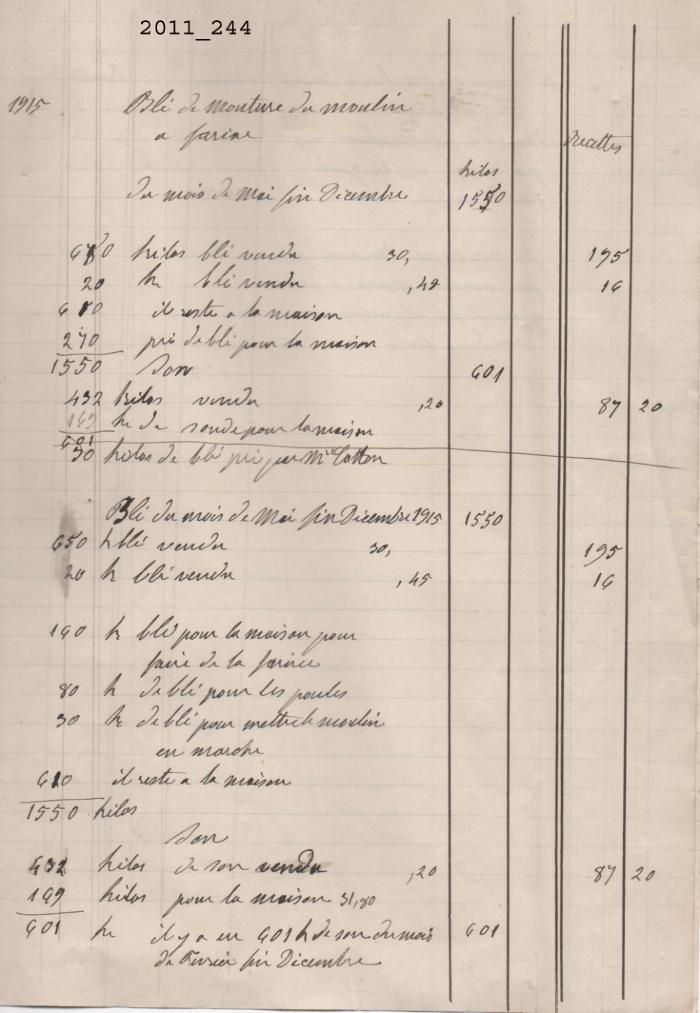 2011_244
1915 Blé de mouture du moulin
a farine
Recettes
kilos
du mois de Mai fin Décembre 1550
650 kilos blé vendu 30, 195
20 k blé vendu ,45 16
610 il reste a la maison
270 pri de blé pour la maison
1550 Son 601
432 kilos vendu ,20 87 20
169 k de son de pour la maison
601
30 kilos de blé pri par Mr Cotton
Blé du mois de Mai fin Décembre 1915 1550
650 k blé vendu 30, 195
20 k blé vendu ,45 16
160 k blé pour la maison pour
faire de la farine
80 k de blé pour les poules
30 k de blé pour mettre le moulin
en marche
610 il reste a la maison
1550 kilos
Son
432 kilos de son vendu ,20 87 20
169 kilos pour la maison 31,80
601 k il y a eu 601 k de son du mois 601
de Fevrier fin Décembre